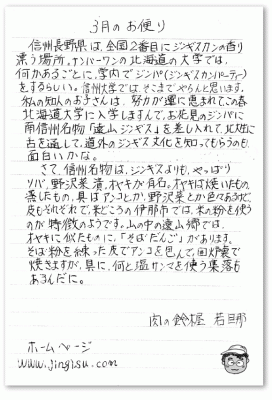 3月のお便り
信州長野県は、全国2番目にジンギスカンの香り
漂う場所。ナンバーワンの北海道の大学では、
何かあるごとに、学内でジンパ(ジンギスカンパーティー)
をするらしい。信州大学では、そこまでやらんと思います。
私の知人のお子さんは、努力が運に恵まれてこの春
北海道大学に入学しますんで、お花見のジンパに
南信州名物「遠山ジンギス」を差し入れて、北大生に
古を通して、道外のジンギス文化を知ってもらうのも、
面白いかな。
さて、信州名物は、ジンギスよりも、やっぱり
ソバ、野沢菜漬、オヤキが有名。オヤキは焼いたもの、
蒸したもの、具はアンコとか野沢菜とか色々あるけど、
皮もそれぞれで、米どころの伊那市では、米の粉を使う
のが特徴のようです。山の中の遠山郷では、
オヤキに似たものに、「そばだんご」があります。
そば粉を練った皮でアンコを包んで、囲炉裏で
焼きますが、具に、何と塩サンマを使う集落も
あるんだに。
肉の鈴木屋 若旦那
ホームページ
www.jingisu.com